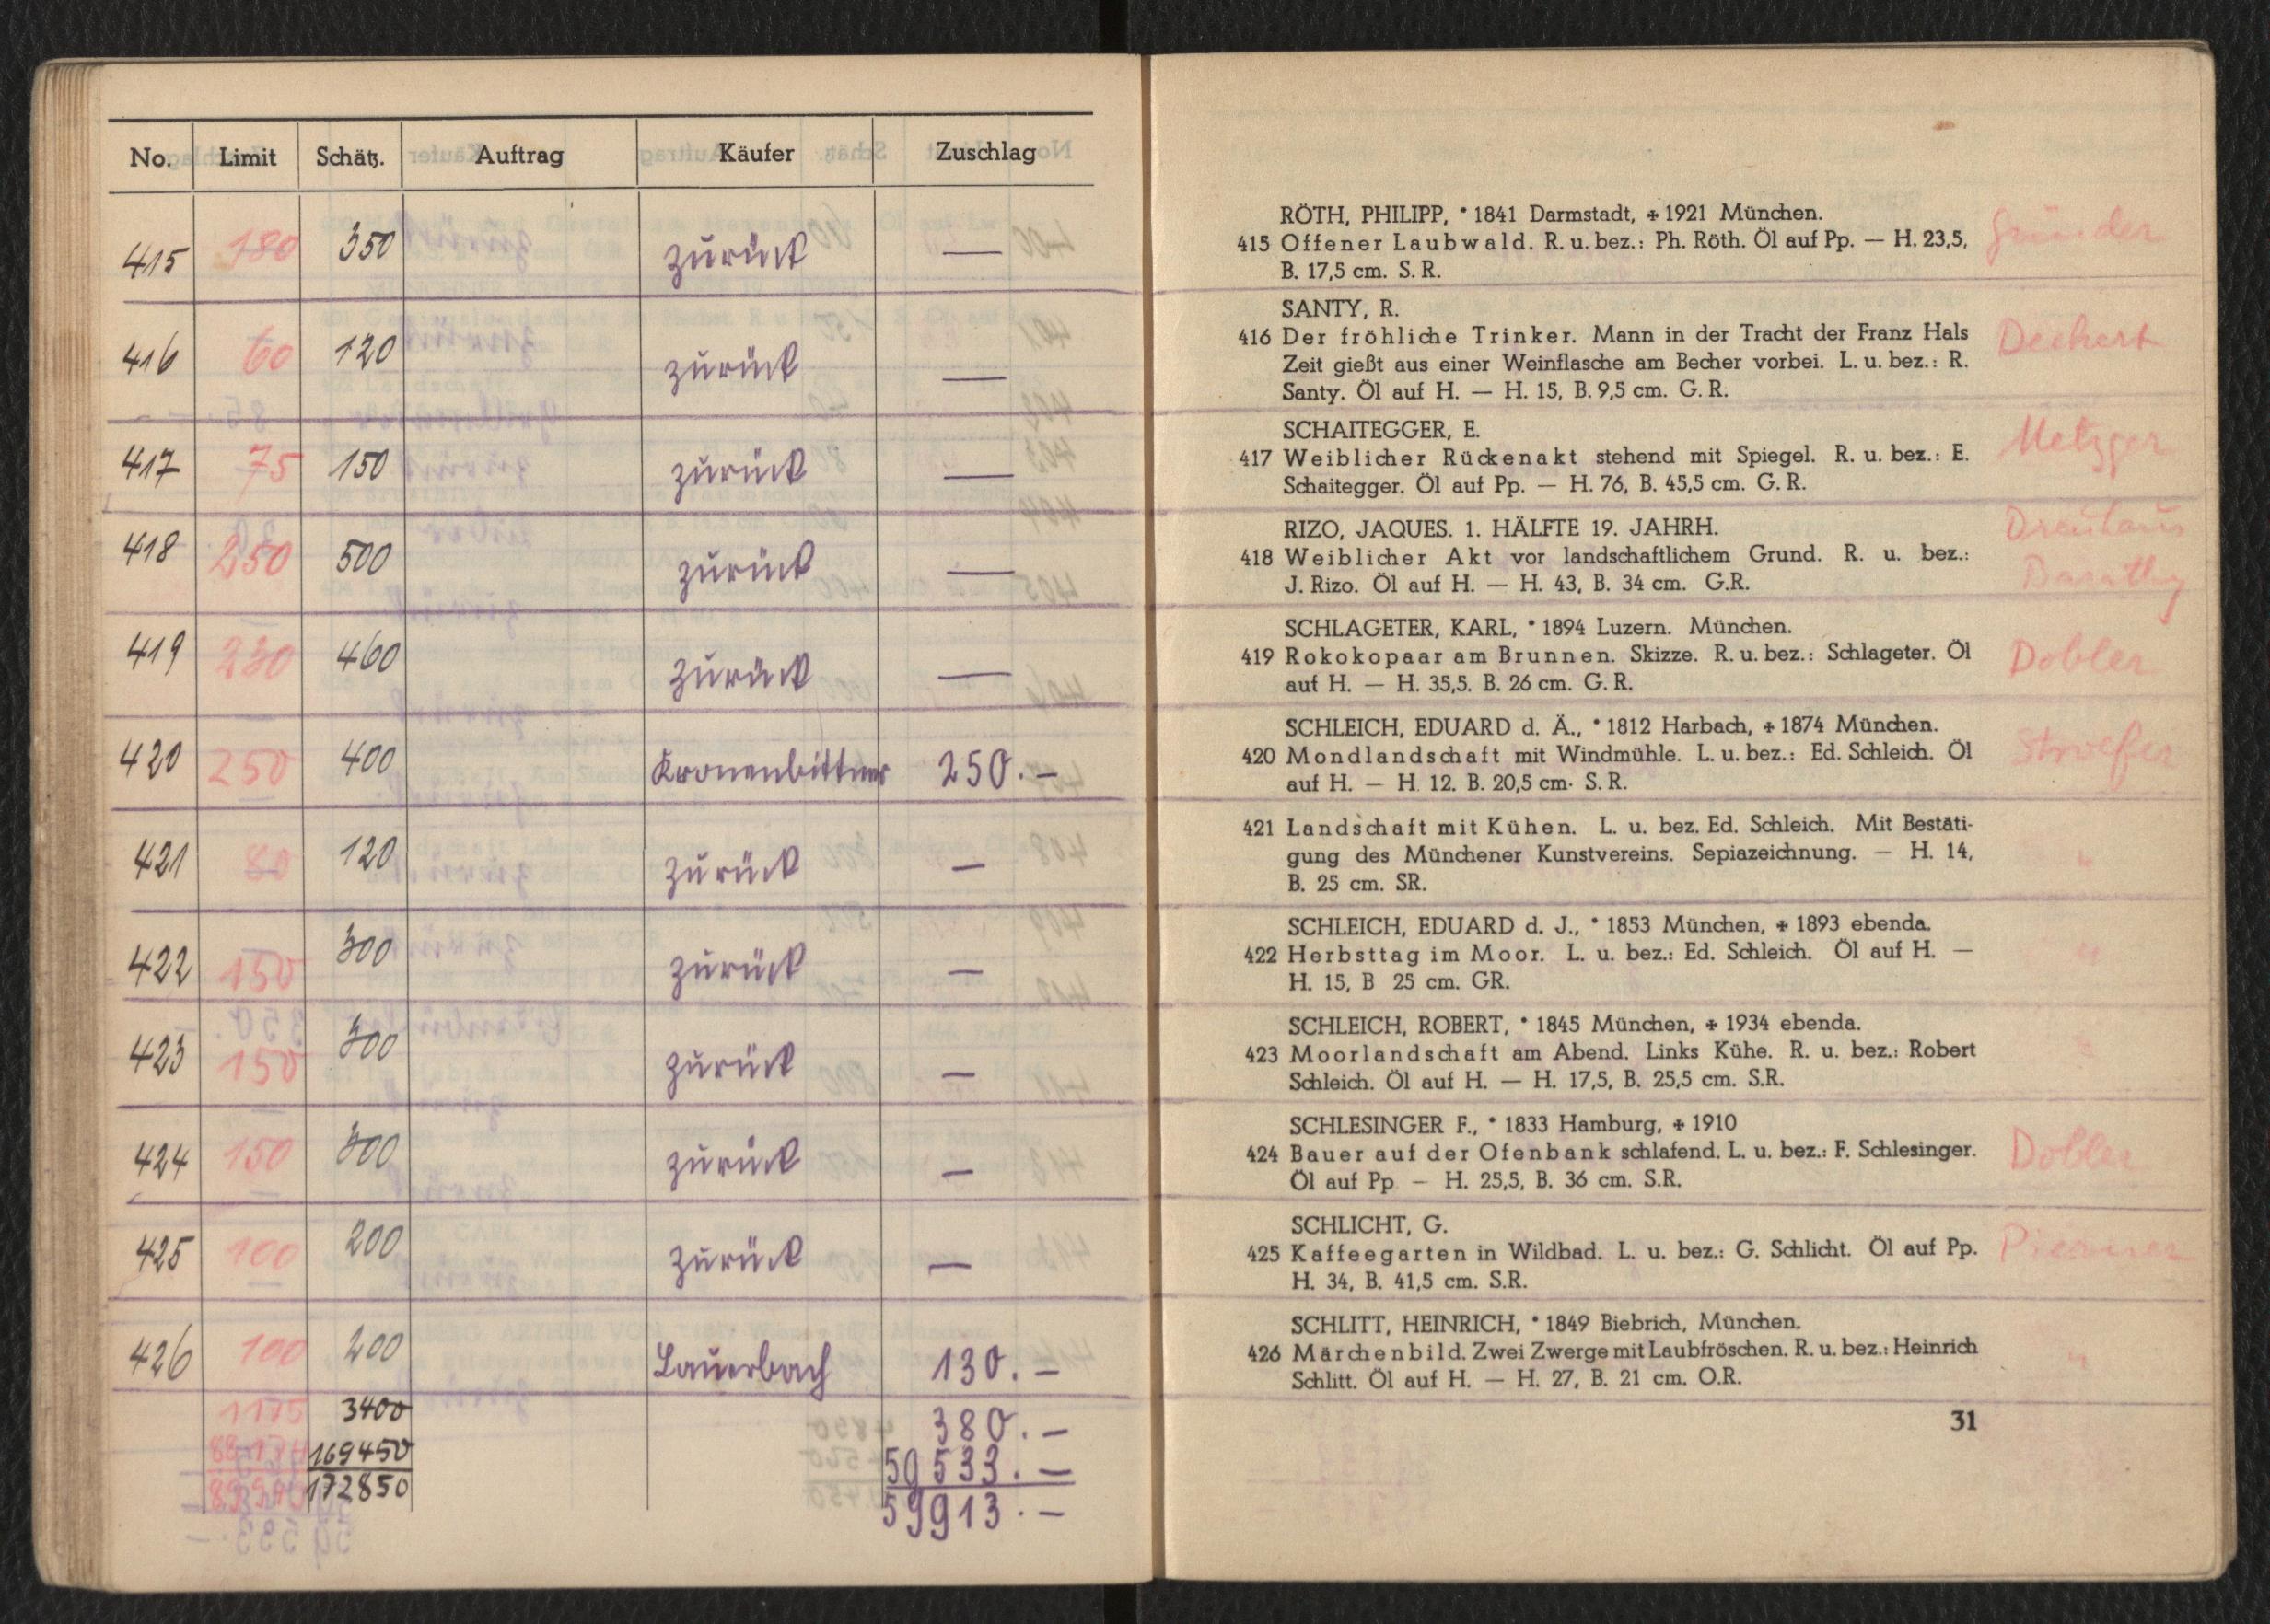 No. Limit Schätz. Auftrag Käufer Zuschlag
415 180 350 zurück —
416 60 120 zurück —
417 75 150 zurück —
418 250 500 zurück —
419 230 460 zurück —
420 250 400 Kronenbittner 250.–
421 80 120 zurück —
422 150 300 zurück —
423 150 300 zurück —
424 150 300 zurück —
425 100 200 zurück —
426 100 200 Lauerbach 130.–
1175 3400 380.–
169450 59533.–
172850 59913.–
RÖTH, PHILIPP, * 1841 Darmstadt, ✠ 1921 München.
415 Offener Laubwald. R. u. bez.: Ph. Röth. Öl auf Pp. — H. 23,5, Gründer
B. 17,5 cm. S. R.
SANTY, R.
416 Der fröhliche Trinker. Mann in der Tracht der Franz Hals Dechert
Zeit gießt aus einer Weinflasche am Becher vorbei. L. u. bez.: R.
Santy. Öl auf H. — H. 15, B. 9,5 cm. G. R.
SCHAITEGGER, E. Metzger
417 Weiblicher Rückenakt stehend mit Spiegel. R. u. bez.: E.
Schaitegger. Öl auf Pp. — H. 76, B. 45,5 cm. G. R.
RIZO, JAQUES. 1. HÄLFTE 19. JAHRH.
418 Weiblicher Akt vor landschaftlichem Grund. R. u. bez.:
J. Rizo. Öl auf H. — H. 43, B. 34 cm. G.R.
SCHLAGETER, KARL, * 1894 Luzern. München.
419 Rokokopaar am Brunnen. Skizze. R. u. bez.: Schlageter. Öl Dobler
auf H. — H. 35,5. B. 26 cm. G. R.
SCHLEICH, EDUARD d. Ä., * 1812 Harbach, ✠ 1874 München.
420 Mondlandschaft mit Windmühle. L. u. bez.: Ed. Schleich. Öl Stroefer
auf H. — H. 12. B. 20,5 cm. S. R.
421 Landschaft mit Kühen. L. u. bez. Ed. Schleich. Mit Bestäti-
gung des Münchener Kunstvereins. Sepiazeichnung. — H. 14, "
B. 25 cm. SR.
SCHLEICH, EDUARD d. J., * 1853 München, ✠ 1893 ebenda.
422 Herbsttag im Moor. L. u. bez.: Ed. Schleich. Öl auf H. — "
H. 15, B 25 cm. GR.
SCHLEICH, ROBERT, * 1845 München, ✠ 1934 ebenda.
423 Moorlandschaft am Abend. Links Kühe. R. u. bez.: Robert "
Schleich. Öl auf H. — H. 17,5, B. 25,5 cm. S.R.
SCHLESINGER F., * 1833 Hamburg, ✠ 1910
424 Bauer auf der Ofenbank schlafend. L. u. bez.: F. Schlesinger. Dobler
Öl auf Pp — H. 25,5, B. 36 cm. S.R.
SCHLICHT, G.
425 Kaffeegarten in Wildbad. L. u. bez.: G. Schlicht. Öl auf Pp.
H. 34, B. 41,5 cm. S.R.
SCHLITT, HEINRICH, * 1849 Biebrich, München.
426 Märchenbild. Zwei Zwerge mit Laubfröschen. R. u. bez.: Heinrich "
Schlitt. Öl auf H. — H. 27, B. 21 cm. O.R.
31